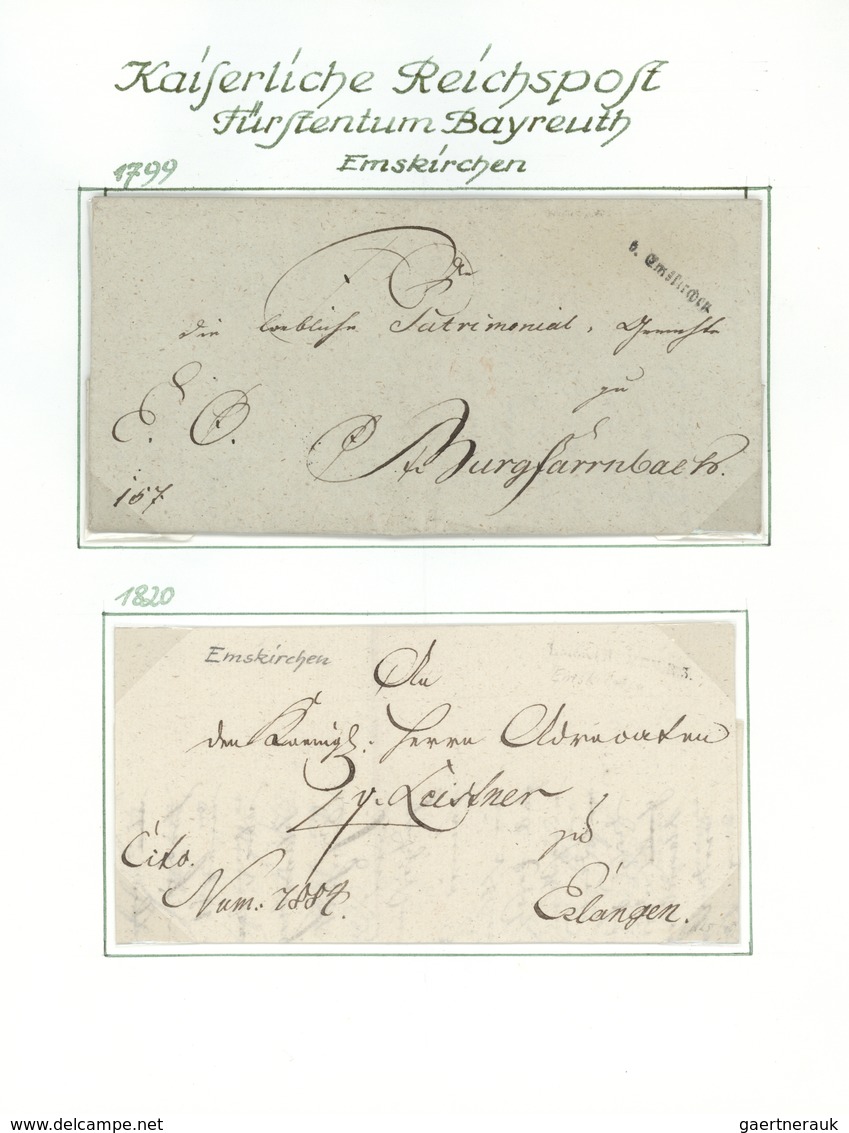 Kaiſerliche Reichspoſt
Fürſtentum Bayreuth
Emskirchen
1799
v. Emskirchen
An
die loebliche Patrimonial, Gerichte
zu
E. O.
Burgfarrnbach.
157
1820
Emskirchen
Emskirchen
An
den Koenigl: Herrn Advocaten
v. Leistner
zu
Cito.
Num: 7884.
Erlangen.
www.delcampe.net
gaertnerauk